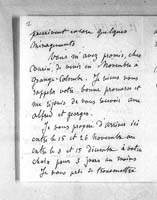 2
pourriont encore quelques
ménagements.
Vous m'avez promis, cher
Cousin, de venir en Novembre à
Grange-Colombe. Je viens vous
rappeler votre bonne promesse et
me réjouis de vous recevoir avec
Alfred et Georges.
Je vous propose d'arriver ici
entre le 15 et 26 Novembre ou
entre 2 et 15 décembre à votre
choix pour 3 jours au moins
Je vous prie de transmettre